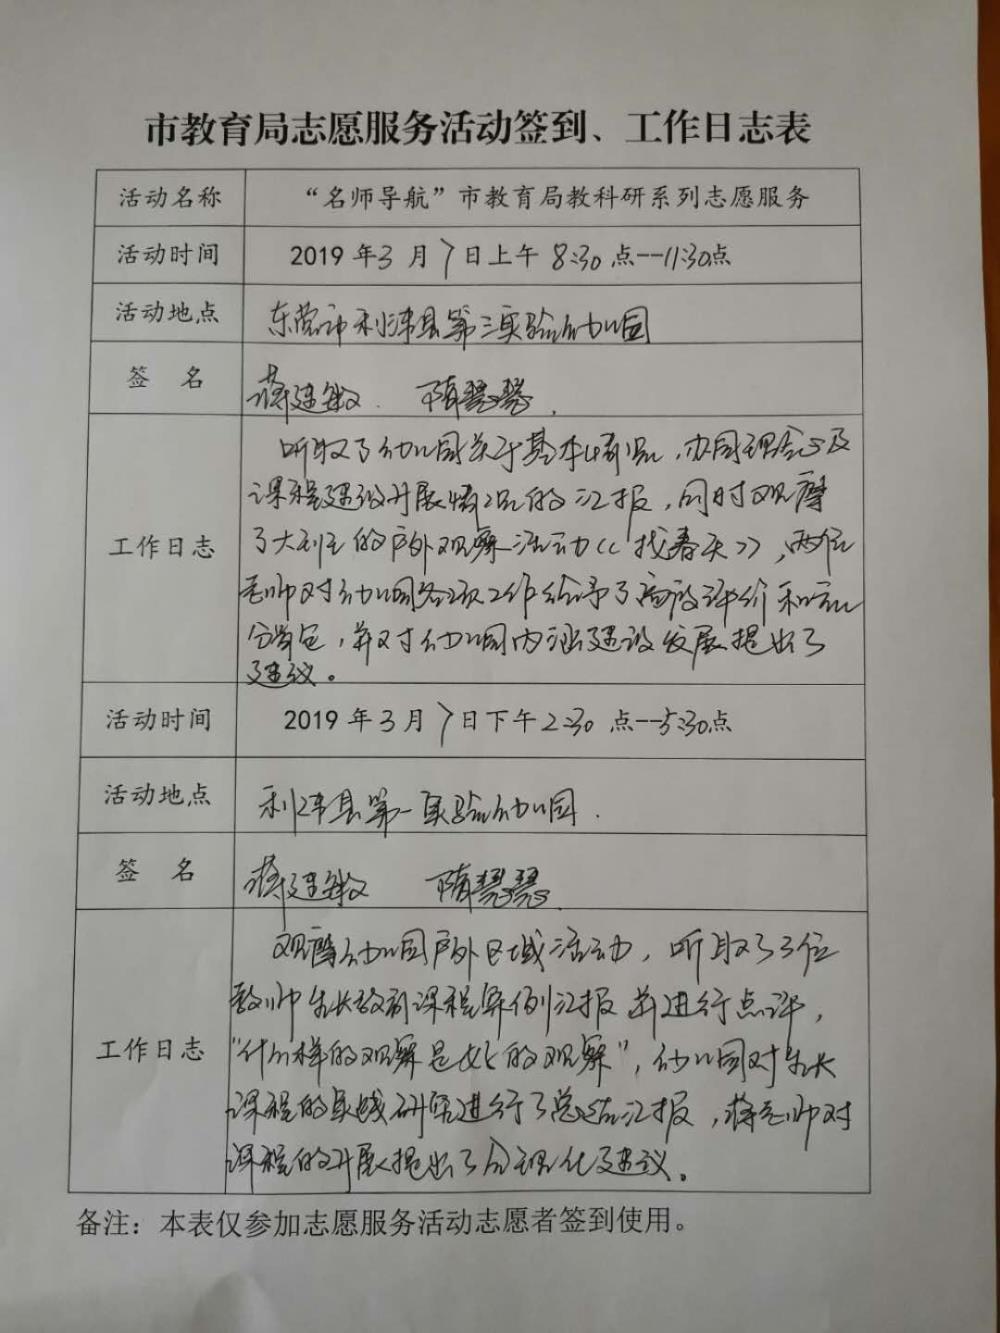 市教育局志愿服务活动签到、工作日志表
活动名称 “名师导航”市教育局教科研系列志愿服务
活动时间 2019年3月7日上午8:30点--11:30点
活动地点 东营市利津县第三实验幼儿园
签 名 蒋建敏. 隋慧慧.
听取了幼儿园关于基本情况,办园理念及
课程建设开展情况的汇报,同时观摩
工作日志 了大班的户外观察活动《找春天》,两位
老师对幼儿园各项工作给予了高度评价和充
分肯定,并对幼儿园内涵建设发展提出了
建议。
活动时间 2019年3月7日下午2:30点--5:30点
活动地点 利津县第一实验幼儿园.
签 名 蒋建敏 隋慧慧.
观摩幼儿园户外区域活动,听取了3位
教师生长教育课程案例汇报并进行点评,
工作日志 “什么样的观察是好的观察”,幼儿园对生长
课程的实践研究进行了总结汇报,蒋老师对
课程的开展提出了合理化建议。
备注:本表仅参加志愿服务活动志愿者签到使用。